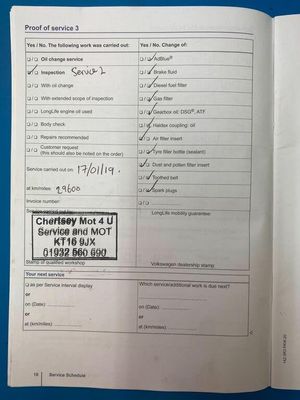 Proof of service 3
Yes / No. The following work was carried out:
Yes / No. Change of:
Oil change service
AdBlue®
Inspection Service 2
Brake fluid
With oil change
Diesel fuel filter
With extended scope of inspection
Gas filter
LongLife engine oil used
Gearbox oil: DSG®, ATF
Body check
Haldex coupling: oil
Repairs recommended
Air filter insert
Customer request
(this should also be noted on the order)
Tyre filler bottle (sealant)
Service carried out on: 17/01/19.
Dust and pollen filter insert
Toothed belt
at km/miles: 29600
Spark plugs
Invoice number:
Service carried out by:
LongLife mobility guarantee:
Chertsey Mot 4 U
Service and MOT
KT16 9JX
01932 560 690
Stamp of qualified workshop
Volkswagen dealership stamp
Your next service
as per Service interval display
Which service/additional work is due next?
or
on (Date):
on (Date):
or
or
at (km/miles):
at (km/miles):
18 Service Schedule